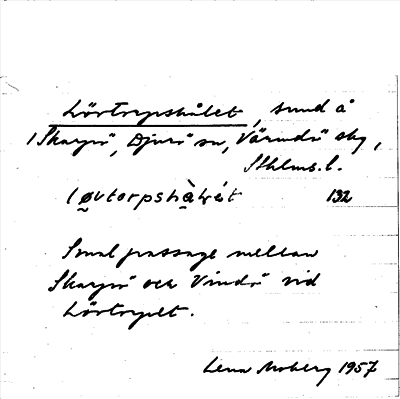 Lövtorpshålet, sund å
/Skarpö, Djurö sn, Värmdö skg,
Sthlms.l.
løvtorpshå̀lét 132
Smal passage mellan
Skarpö och Vindö vid
Lövtorpet.
Lena Moberg 1957